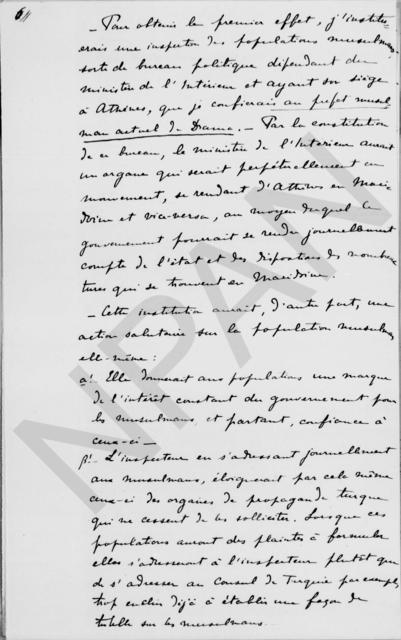 6
— Pour obtenir le premier effet, j'institue-
rais une inspection des populations musulmanes
sorte de bureau politique dépendant du
ministère de l'Intérieur et ayant son siège
à Athènes, que je confierais au préfet musul-
man actuel de Drama. — Par la constitution
de ce bureau, le ministère de l'Intérieur aurait
un organe qui serait perpétuellement en
mouvement, se rendant d'Athènes en Macé-
doine et vice-versa, au moyen duquel le
gouvernement pourrait se rendre journellement
compte de l'état et des dispositions des
qui se trouvent en Macédoine.
— Cette institution aurait, d'autre part, une
action salutaire sur la population musulmane
elle-même :
a! Elle donnerait aux populations une marque
de l'intérêt constant du gouvernement pour
les musulmans, et partant, confiance à
ceux-ci —
β!- L'inspecteur en s'adressant journellement
aux musulmans, éloignerait par cela même
ceux-ci des organes de propagande turque
qui ne cessent de les solliciter. Lorsque ces
populations auront des plaintes à formuler
elles s'adresseront à l'inspecteur plutôt que
de s'adresser au Consul de Turquie par exemple
trop enclin déjà à établir une façon de
tutelle sur les musulmans.
NPAN